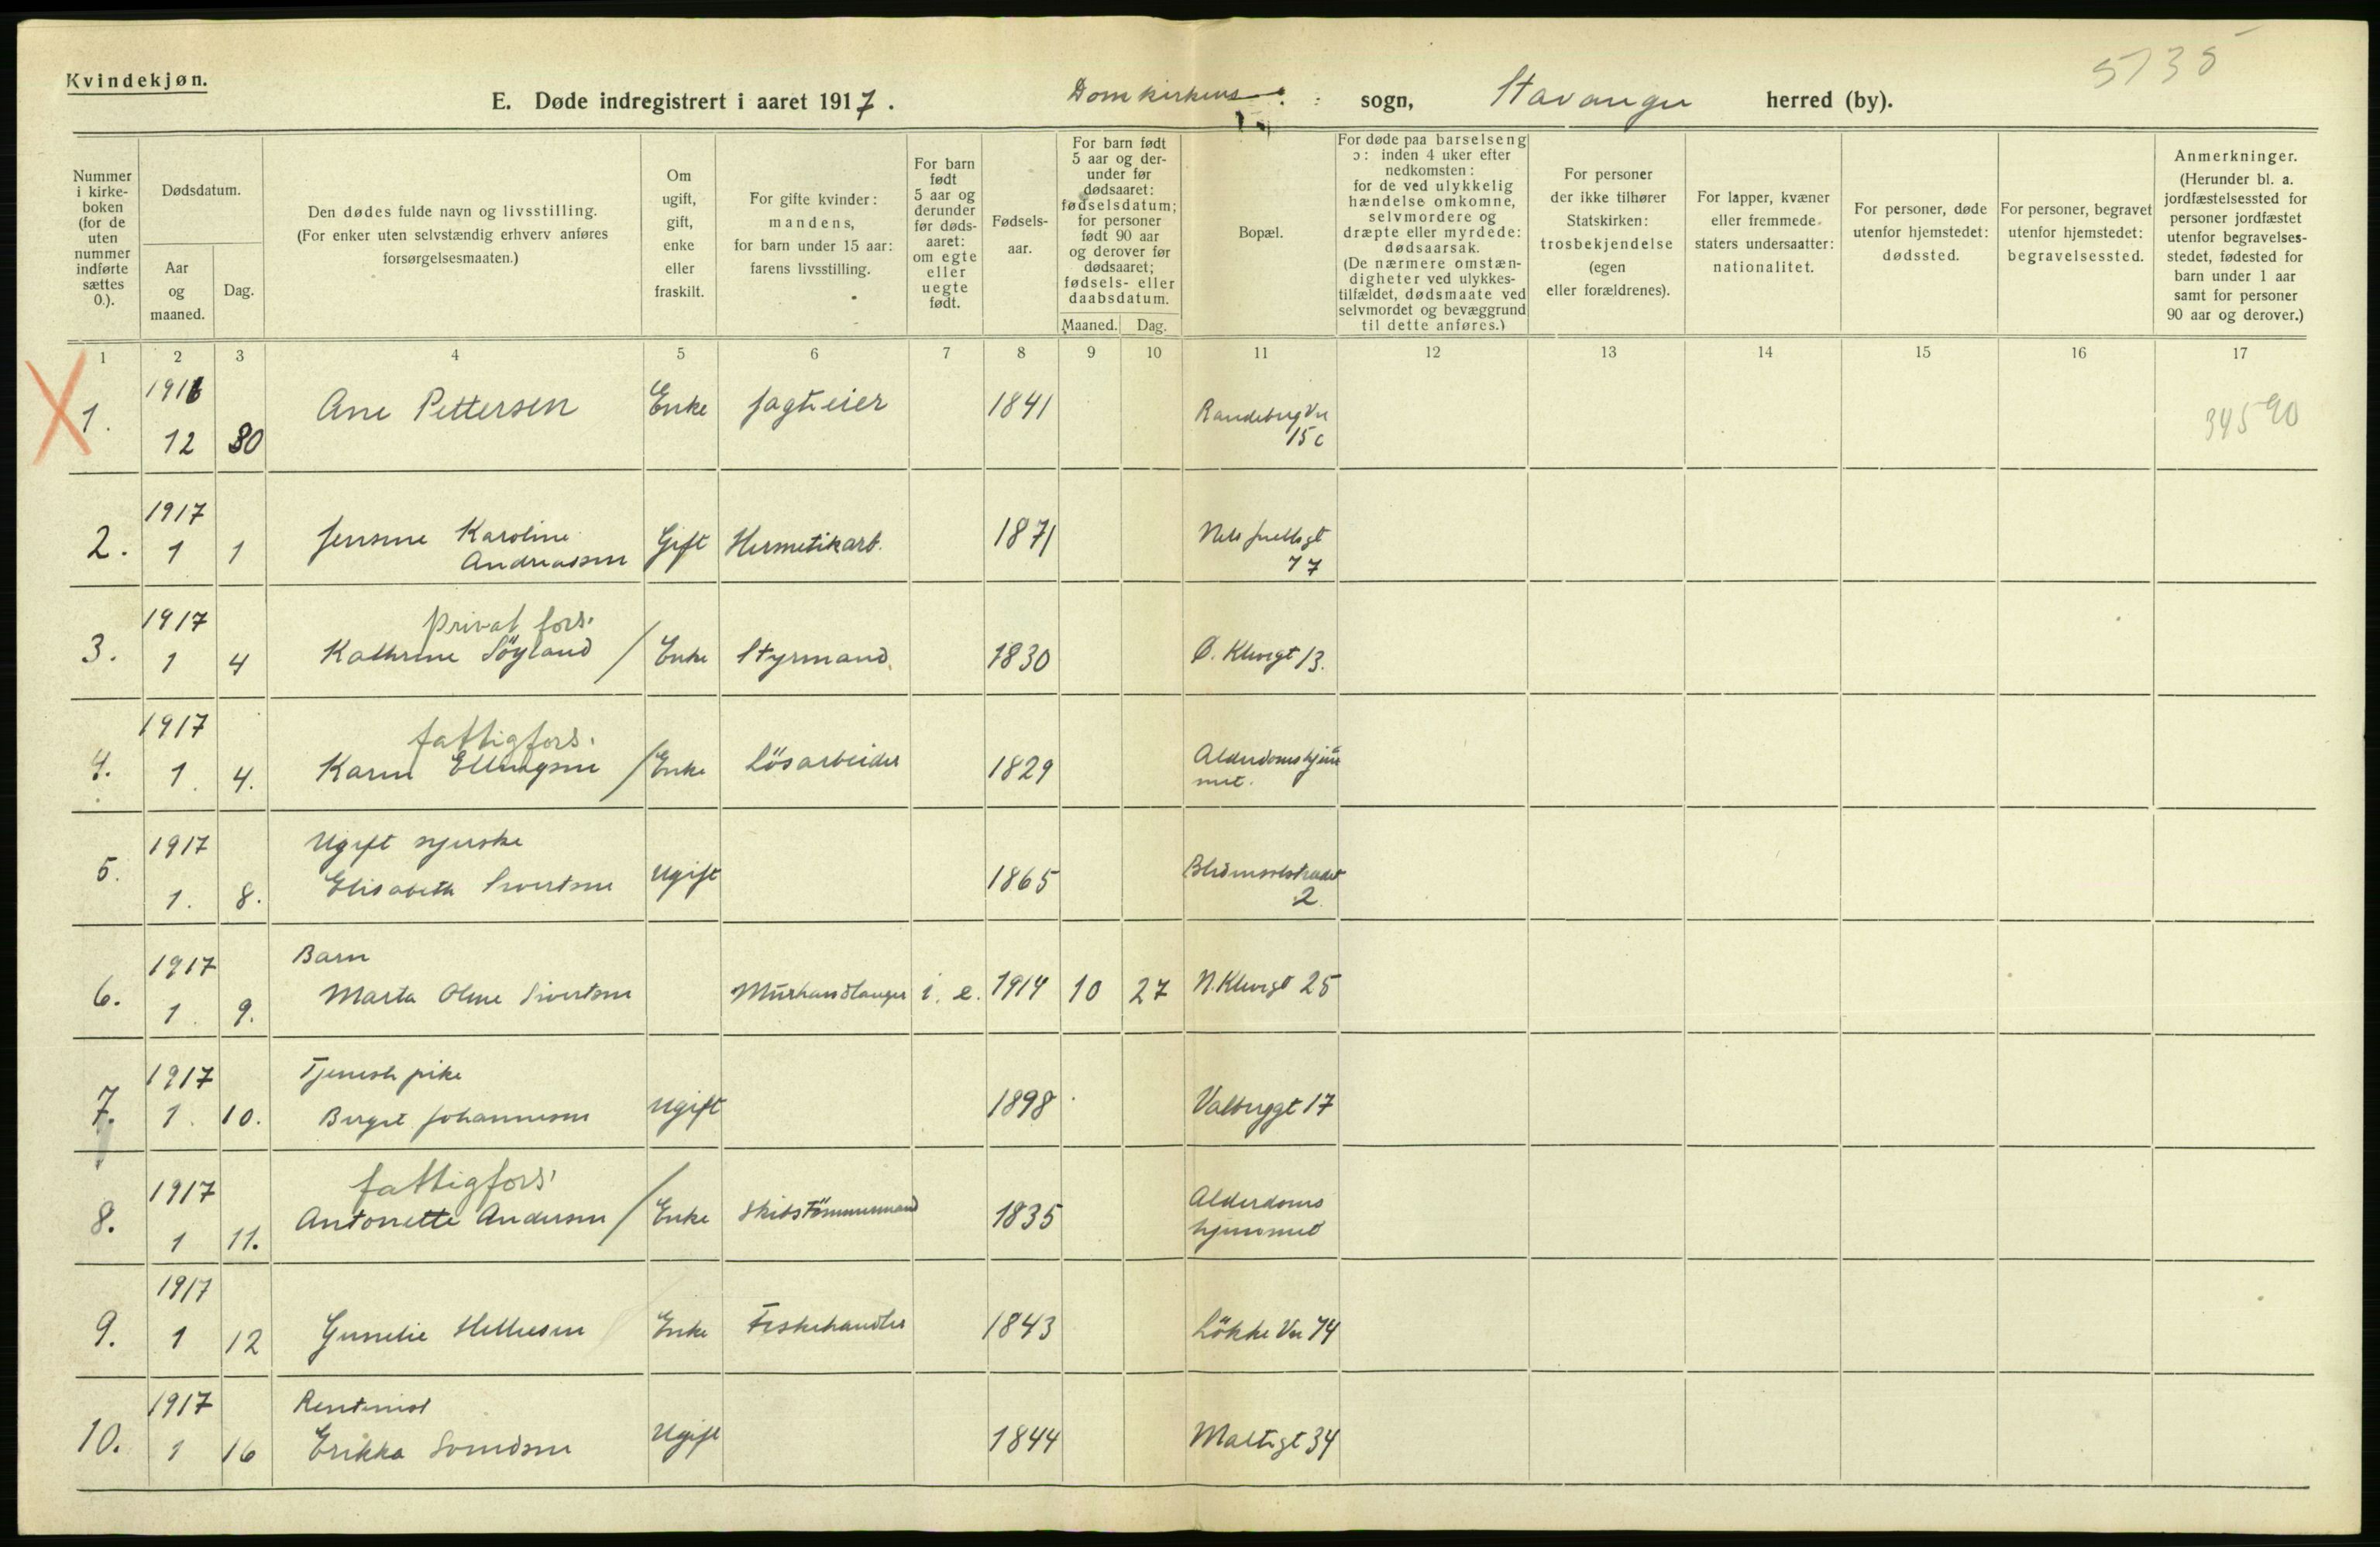 Kvindekjøn.
5735
E. Døde indregistrert i aaret 1917. Domkirkens sogn, Stavanger herred (by).
Nummer i kirke- boken (for de uten nummer indførte sættes 0.).
Dødsdatum.
Aar og maaned.
Dag.
Den dødes fulde navn og livsstilling.
(For enker uten selvstændig erhverv anføres
forsørgelsesmaaten.)
Om ugift, gift, enke eller fraskilt.
For gifte kvinder:
mandens,
for barn under 15 aar:
farens livsstilling.
For barn født 5 aar og derunder før døds- aaret: om egte eller uegte født.
Fødsels- aar.
For barn født 5 aar og der- under før dødsaaret: fødselsdatum; for personer født 90 aar og derover før dødsaaret; fødsels- eller daabsdatum.
Maaned. Dag.
Bopæl.
For døde paa barselseng
ɔ: inden 4 uker efter
nedkomsten:
for de ved ulykkelig
hændelse omkomne,
selvmordere og
dræpte eller myrdede:
dødsaarsak.
(De nærmere omstæn-
digheter ved ulykkes-
tilfældet, dødsmaate ved
selvmordet og bevæggrund
til dette anføres.)
For personer
der ikke tilhører
Statskirken:
trosbekjendelse
(egen
eller forældrenes).
For lapper, kvæner
eller fremmede
staters undersaatter:
nationalitet.
For personer, døde
utenfor hjemstedet:
dødssted.
For personer, begravet
utenfor hjemstedet:
begravelsessted.
Anmerkninger.
(Herunder bl. a.
jordfæstelsessted for
personer jordfæstet
utenfor begravelses-
stedet, fødested for
barn under 1 aar
samt for personer
90 aar og derover.)
1 2 3 4 5 6 7 8 9 10 11 12 13 14 15 16 17
1916
1. 12 30 Ane Pettersen Enke Jagteier 1841 Randebergvn 15c 34590
1917
2. 1 1 Jensine Karoline Andreassen Gift Hermetikarb. 1871 Nels Juellsgt 77
1917 Privat fors.
3. 1 4 Kathrine Söyland / Enke Styrmand. 1830 Ø. Klevegt 13.
1917 fattigfors.
4. 1. 4. Karen Ellingsen / Enke Lösarbeider 1829 Alderdomshjem met.
1917 Ugift syerske
5. 1. 8. Elisabeth Sivertsen Ugift 1865 2
1917 Barn
6. 1. 9. Marta Oline Sivertsen Murhandlanger i. e. 1914 10 27 N. Klevegt 25
1917 Tjenestepike
7. 1. 10. Berget Johannesen Ugift 1898 Valbuggt 17
1917 fattigfors.
8. 1 11. Antonette Andersen / Enke Skibstömmermand 1835 Alderdoms hjemmet
1917
9. 1 12 Gunelie Helliesen Enke Fiskehandler 1843 Lökke Vn 74
1917 Rentenist
10. 1 16 Erikka Svendsen Ugift 1844 Maltigt 34